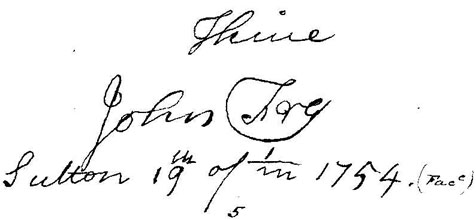 Thine
John Fry
Sutton 19th of 1/m 1754. (Facc)
5